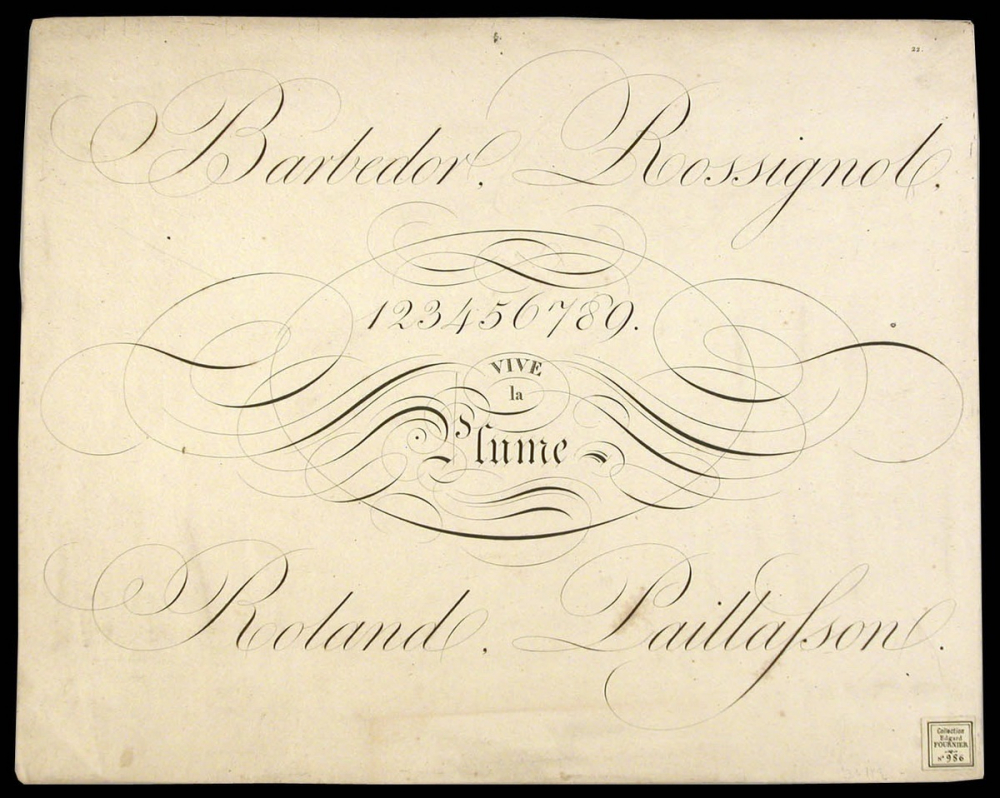 22.
Barbedor, Rossignol,
123456789.
VIVE
la
Plume
Roland, Paillaſson.
Collection
Edgard
FOURNIER
N° 986